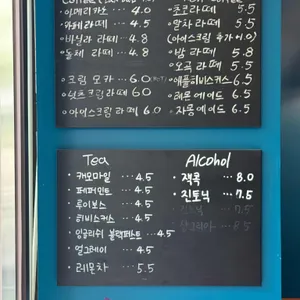 아메리카노 ... 4.0
카페라떼 ... 4.5
바닐라 라떼 .. 4.8
돌체 라떼 ... 4.8
크림 모카 ... 6.0
아이스크림라떼 6.0
초코라떼 5.5
말차라떼 5.5
(아이스크림 추가
밤 라떼 5.8
오곡 라떼 5.5
애플히비스커스 6.5
레몬에이드 6.5
자몽에이드 6.5
Tea
캐모마일 ... 4.5
페퍼민트 ... 4.5
루이보스 ... 4.5
히비스커스 ... 4.5
잉글리쉬 블랙퍼스트 ... 4.5
얼그레이 ... 4.5
레몬차 ... 5.5
Alcohol
잭콕 ... 8.0
진토닉 ... 7.5
7.5
8.5